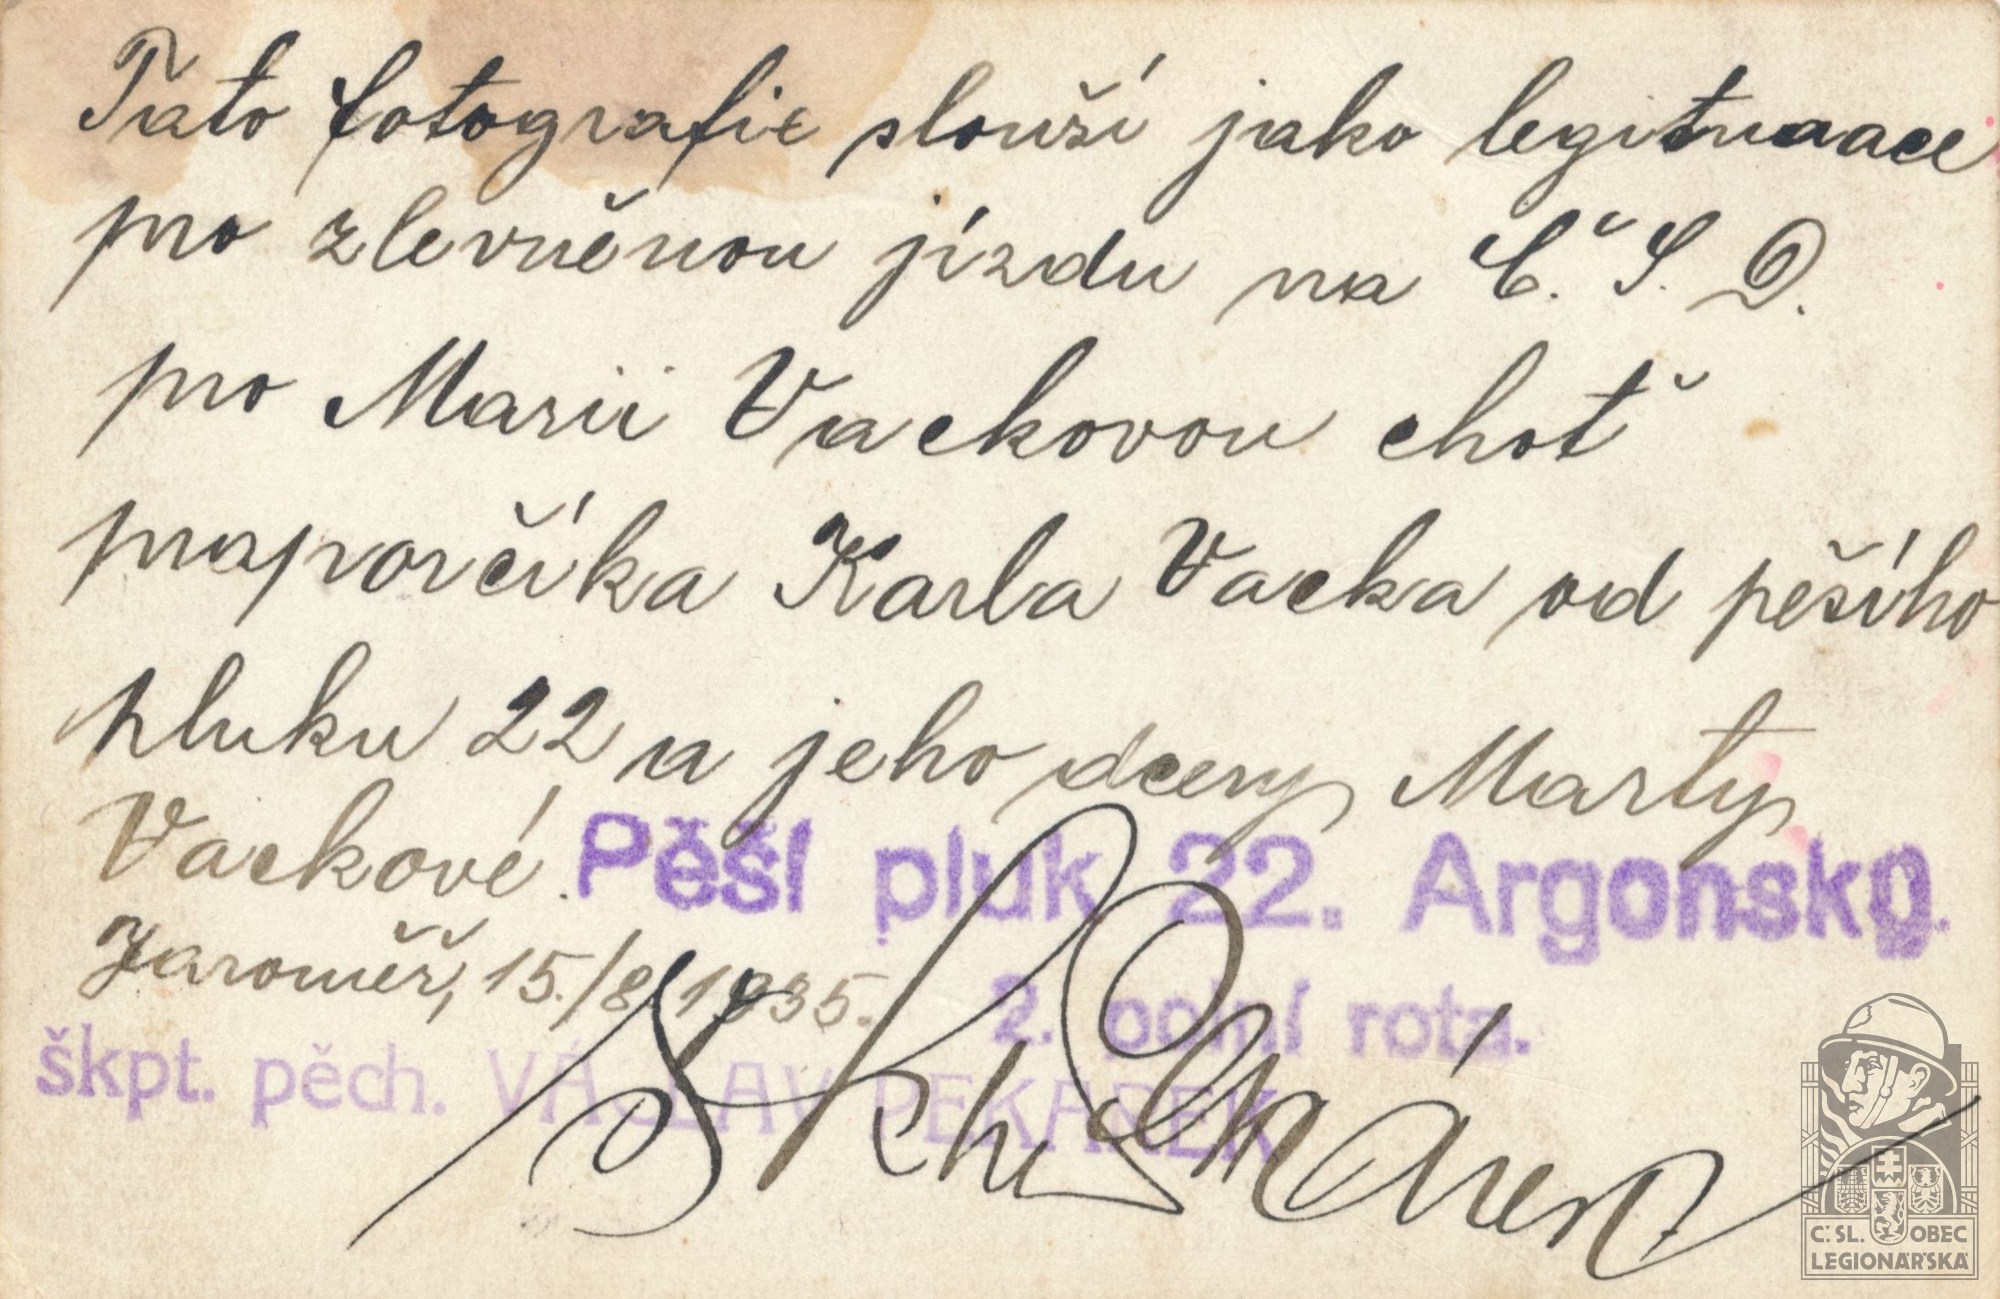 Tato fotografie slouží jako legitimace
pro zlevněnou jízdu na Č. S. D.
pro Marii Vackovou choť
praporčíka Karla Vacka od pěšího
pluku 22 a jeho dcery Marty
Vackové.
Pěší pluk 22. Argonský.
Jaroměř, 15./8 1935.
2. polní rota.
škpt. pěch. VÁCLAV PEKÁREK
Škpt Pekárek
Č. SL. OBEC
LEGIONÁŘSKÁ